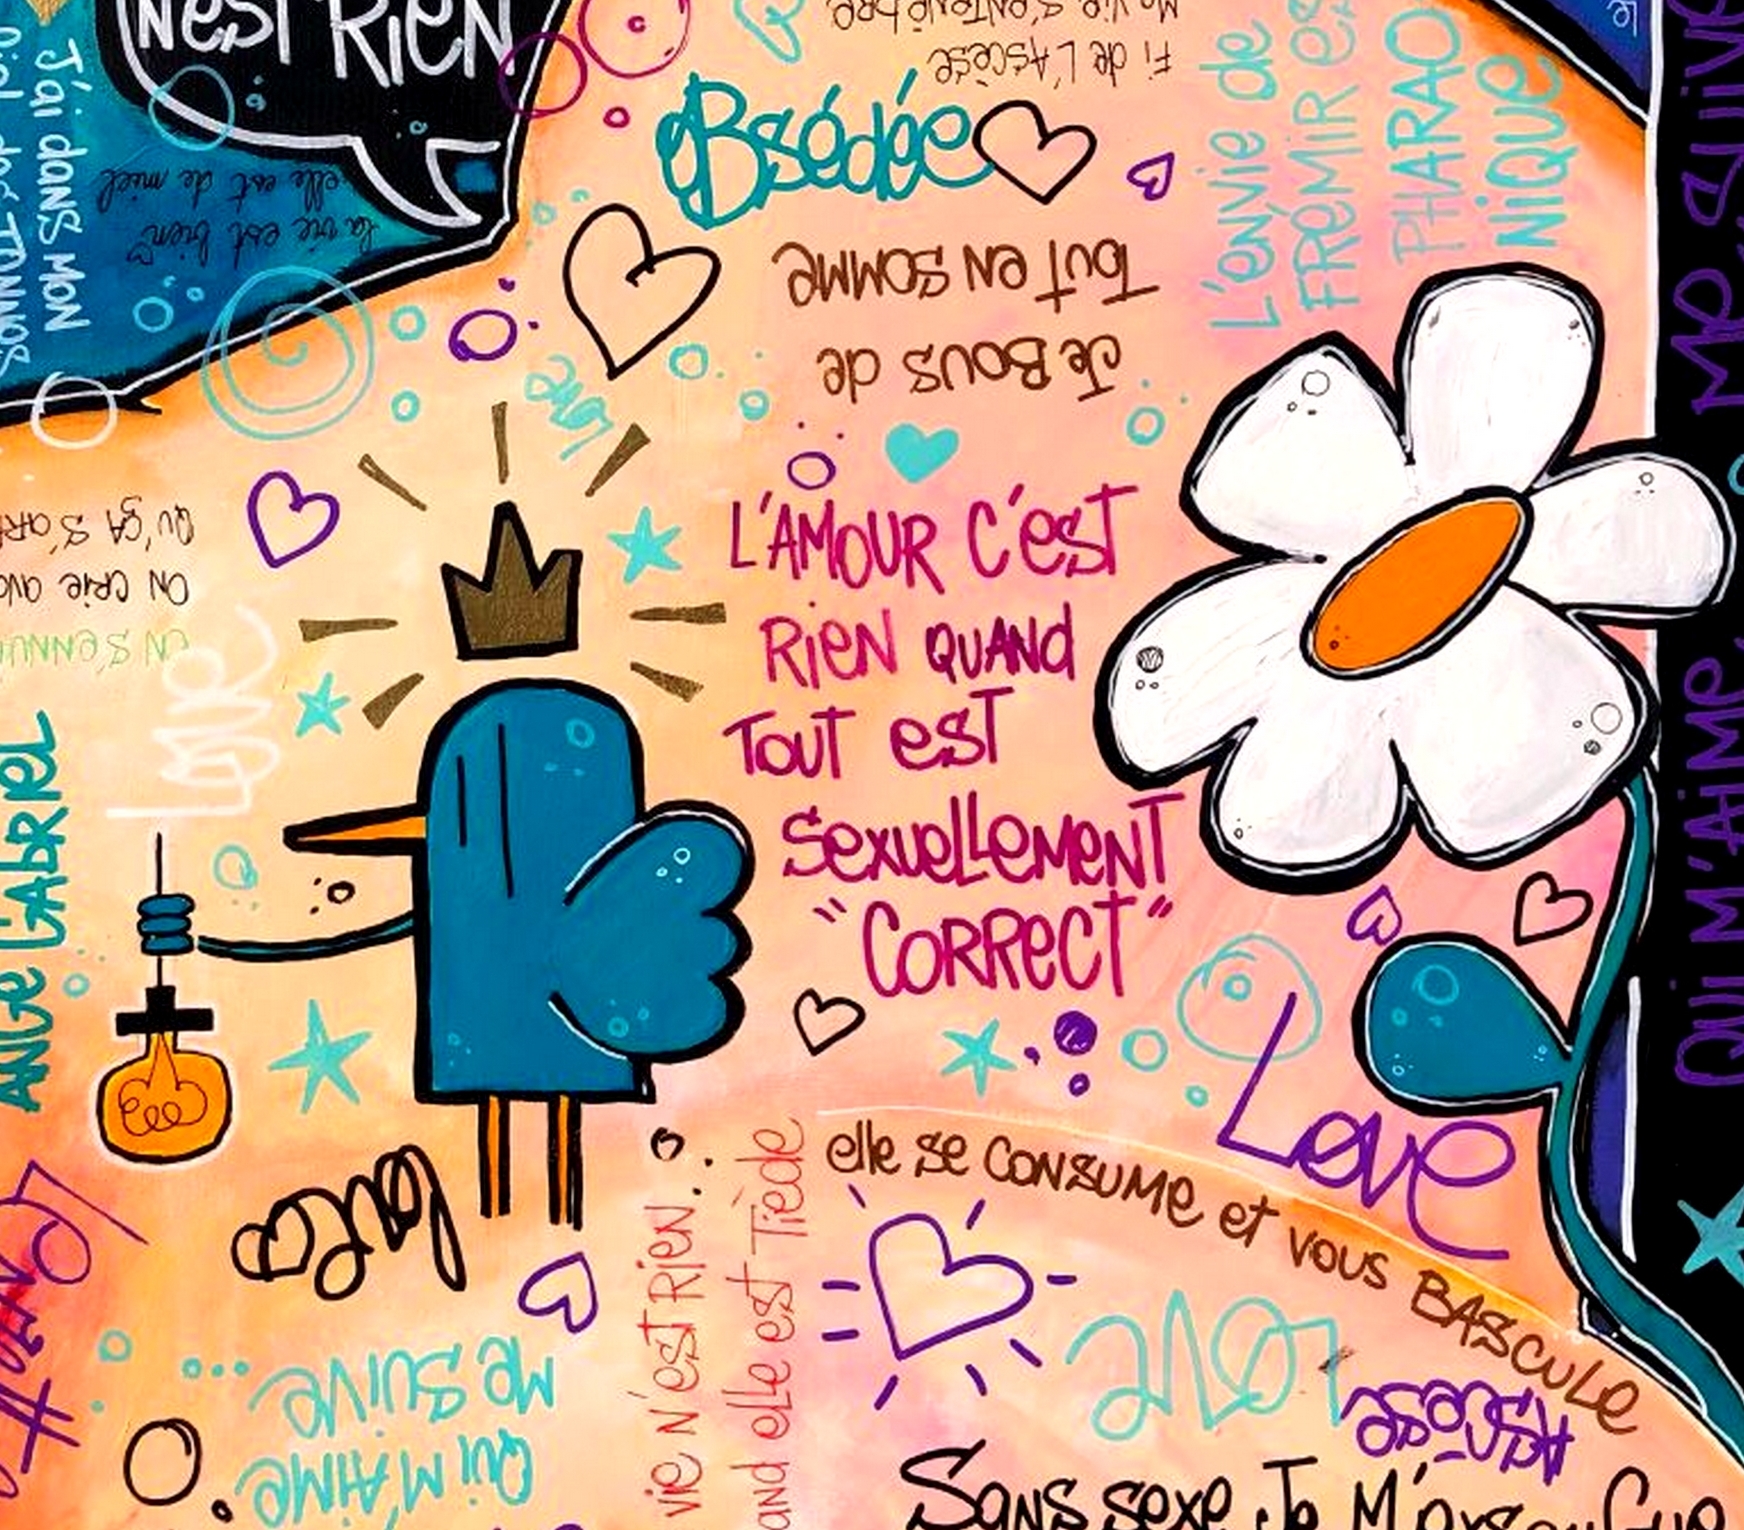 N'EST RIEN
J'ai dans mon
la vie est bien
elle est de miel
Fi de l'Ascèse
Ma vie s'enténèbre
Obsédée
L'envie de
FRÉMIR est
PHARAO
NIQUE
Je Bous de
Tout en somme
Love
L'AMOUR C'EST
RIEN QUAND
Tout est
Sexuellement
"CORRECT"
en s'ennuie
on crie
Qu'ça s'arr
Love
ANGE GABRIEL
Love
Love
elle se consume et vous BASCULE
vie n'est rien..
and elle est Tiède
QUI M'AIME
ME SUIVE...
Love
Ascèse
Sans sexe Je M'
QUI M'AIME,
ME SUIVE